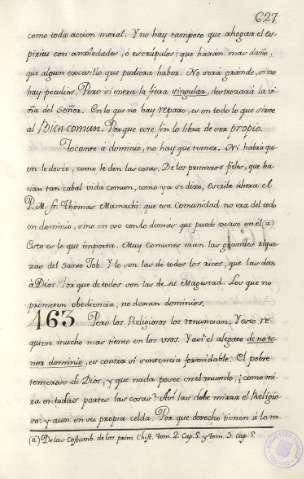 627
como toda accion moral. Y no hay tampoco que ahogar el es-
piritu con ansiedades, o escrupulos; que haràn mas daño,
que algun excesillo que pudiera haber. No serà grande, si no
hay peculio. Pero si entra la fiera singular, destrozarà la vi-
ña del Señor. En lo que no hay reparo, es en todo lo que sirve
al Bien comun. Porque este fin lo libra de ser propio.
Tocante à dominio, no hay que temer. Ni habrà que
se le deste, como le den las cosas. De los primeros fieles, que ha-
cian tan cabal vida comun, como ya se dixo, escribe ahora el
P. M. fr. Thomas Mamachi: que era Comunidad no era del todo
en dominio, sino en uso cando demàs que pudo (a)
Esto es lo que importa. Muy comunes eran las grandes rique-
zas del Santo Job. Y lo son las de todos los ricos, que las dan
à Dios. Por que de todos son las de su Magestad. Los que no
prometen obediencia, no dexan dominios.
463 Pero los Religiosos los renuncian. Y esto re-
quiere mucho mas tiento en los usos. Y aun el alegato de no te-
ner dominio, es contra sì sentencia formidable. El pobre
temeroso de Dios, y que nada posee en el mundo, ¿como mi-
ra en todas partes las cosas? Asi las debe mirar el Religio-
so: y aun en su propia celda. Por que derecho tienen à la m
(a) De las Costumb. de los prim. Christ. tom. 2. Cap. P. y tom. 3. cap. P.